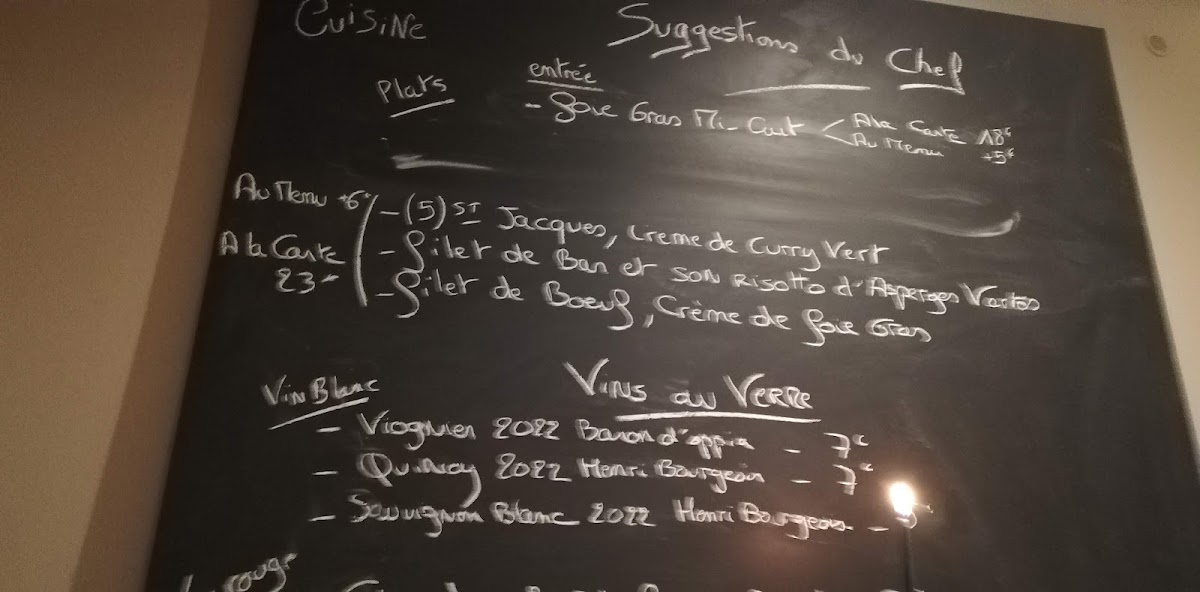 Cuisine
Suggestions du Chef
Plats
entrée
- foie Gras Mi-Cuit < A la Carte 18€
Au Menu +5€
Au Menu +6€ - (5) ST Jacques, Creme de Curry Vert
A la Carte - filet de Bar et son Risotto d'Asperges Vertes
23€ - filet de Boeuf, Crème de foie Gras
Vin Blanc
Vins au Verre
- Viognier 2022 Baron d'oppia - 7€
- Quincy 2022 Henri Bourgeois - 7€
- Sauvignon Blanc 2022 Henri Bourgeois -
rouge